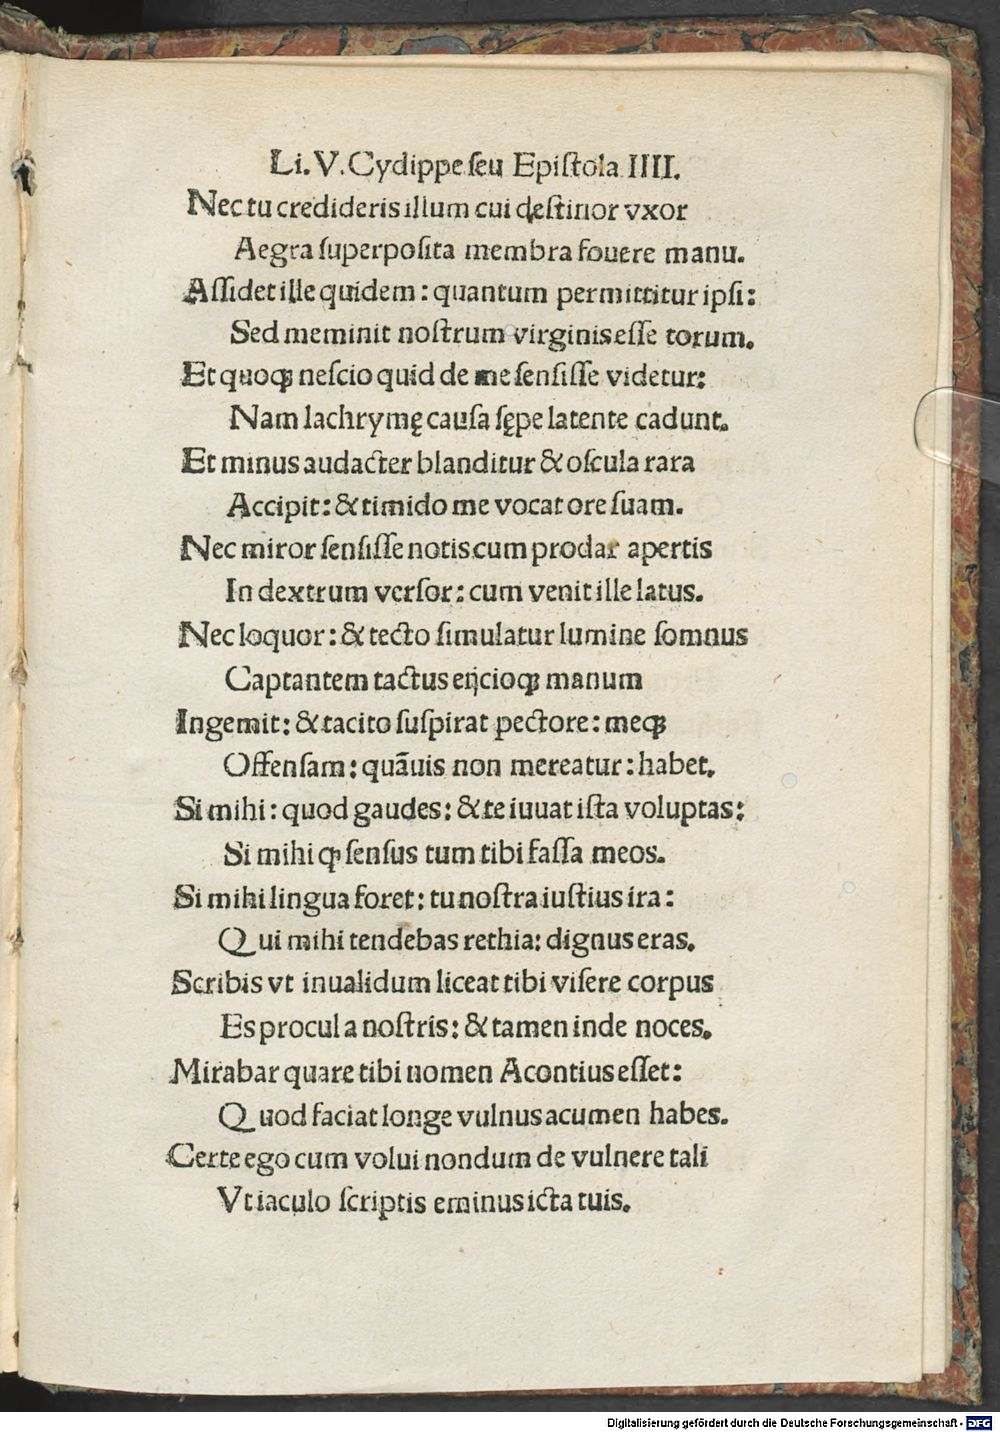 Li. V. Cydippe seu Epiſtola IIII.
Nec tu credideris illum cui deſtinor vxor
Aegra ſuperpoſita membra fouere manu.
Aſſidet ille quidem: quantum permittitur ipſi:
Sed meminit noſtrum virginis eſſe torum.
Et quoqꝫ neſcio quid de me ſenſiſſe videtur:
Nam lachrymę cauſa ſępe latente cadunt.
Et minus audacter blanditur & oſcula rara
Accipit: & timido me vocat ore ſuam.
Nec miror ſenſiſſe notis cum prodar apertis
In dextrum verſor: cum venit ille latus.
Nec loquor: & tecto ſimulatur lumine ſomnus
Captantem tactus eijcioqꝫ manum
Ingemit: & tacito ſuſpirat pectore: meqꝫ
Offenſam: quãuis non mereatur: habet.
Si mihi: quod gaudes: & te iuuat iſta voluptas:
Si mihi qꝫ ſenſus tum tibi faſſa meos.
Si mihi lingua foret: tu noſtra iuſtius ira:
Qui mihi tendebas rethia: dignus eras.
Scribis vt inualidum liceat tibi viſere corpus
Es procul a noſtris: & tamen inde noces.
Mirabar quare tibi nomen Acontius eſſet:
Quod faciat longe vulnus acumen habes.
Certe ego cum volui nondum de vulnere tali
Vt iaculo ſcriptis eminus icta tuis.
Digitalisierung gefördert durch die Deutsche Forschungsgemeinschaft - DFG